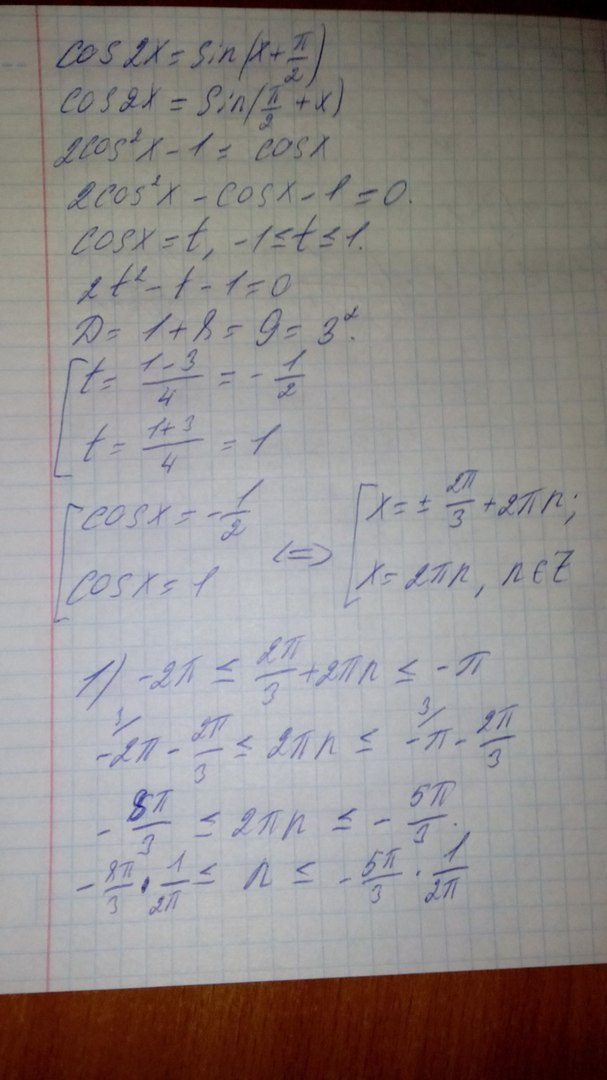 cos2x = sin(x + π/2)
cos2x = sin(π/2 + x)
2cos²x - 1 = cosx
2cos²x - cosx - 1 = 0.
cosx = t, -1 ≤ t ≤ 1.
2t² - t - 1 = 0
D = 1 + 8 = 9 = 3².
[ t = (1-3)/4 = -1/2
t = (1+3)/4 = 1
[ cosx = -1/2
cosx = 1
<=>
[ x = ± 2π/3 + 2πn;
x = 2πn, n ∈ Z
1) -2π ≤ 2π/3 + 2πn ≤ -π
3/ 3/
-2π - 2π/3 ≤ 2πn ≤ -π - 2π/3
-8π/3 ≤ 2πn ≤ -5π/3.
-8π/3 · 1/2π ≤ n ≤ -5π/3 · 1/2π